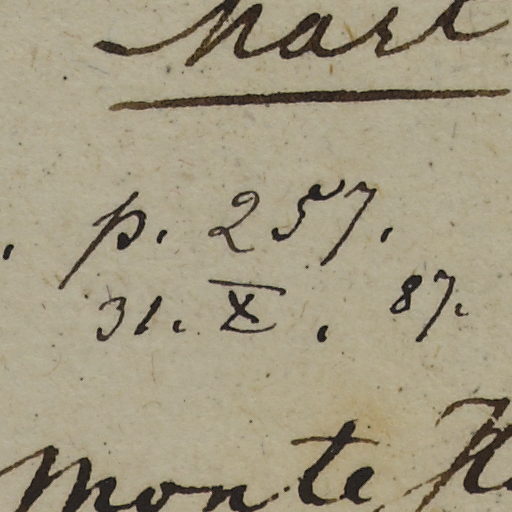 Mart
. p. 257.
31. X. 87.
Monte